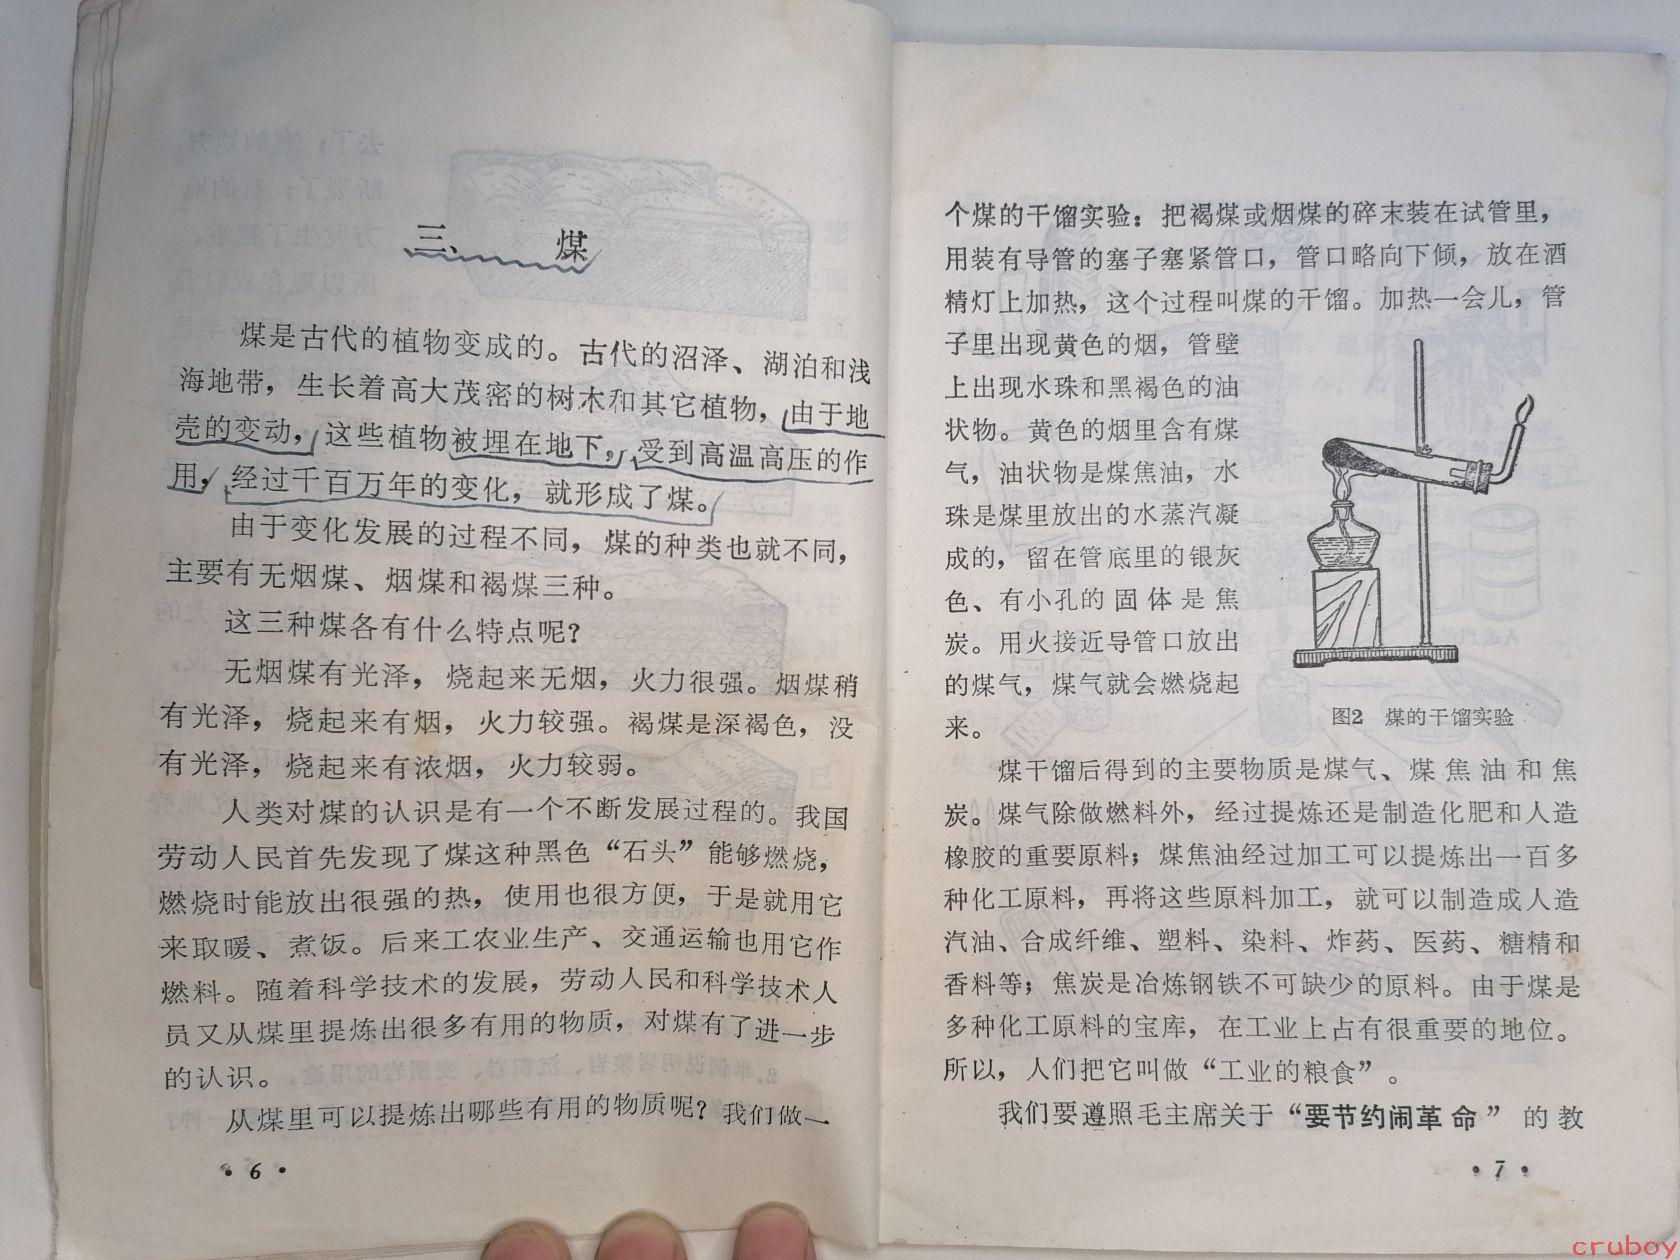 三、 煤
煤是古代的植物变成的。古代的沼泽、湖泊和浅
海地带，生长着高大茂密的树木和其它植物，由于地
壳的变动，这些植物被埋在地下，受到高温高压的作
用，经过千百万年的变化，就形成了煤。
由于变化发展的过程不同，煤的种类也就不同，
主要有无烟煤、烟煤和褐煤三种。
这三种煤各有什么特点呢？
无烟煤有光泽，烧起来无烟，火力很强。烟煤稍
有光泽，烧起来有烟，火力较强。褐煤是深褐色，没
有光泽，烧起来有浓烟，火力较弱。
人类对煤的认识是有一个不断发展过程的。我国
劳动人民首先发现了煤这种黑色“石头”能够燃烧，
燃烧时能放出很强的热，使用也很方便，于是就用它
来取暖、煮饭。后来工农业生产、交通运输也用它作
燃料。随着科学技术的发展，劳动人民和科学技术人
员又从煤里提炼出很多有用的物质，对煤有了进一步
的认识。
从煤里可以提炼出哪些有用的物质呢？我们做一
• 6 •
个煤的干馏实验：把褐煤或烟煤的碎末装在试管里，
用装有导管的塞子塞紧管口，管口略向下倾，放在酒
精灯上加热，这个过程叫煤的干馏。加热一会儿，管
子里出现黄色的烟，管壁
上出现水珠和黑褐色的油
状物。黄色的烟里含有煤
气，油状物是煤焦油，水
珠是煤里放出的水蒸汽凝
成的，留在管底里的银灰
色、有小孔的固体是焦
炭。用火接近导管口放出
的煤气，煤气就会燃烧起
来。
图2 煤的干馏实验
煤干馏后得到的主要物质是煤气、煤焦油和焦
炭。煤气除做燃料外，经过提炼还是制造化肥和人造
橡胶的重要原料；煤焦油经过加工可以提炼出一百多
种化工原料，再将这些原料加工，就可以制造成人造
汽油、合成纤维、塑料、染料、炸药、医药、糖精和
香料等；焦炭是冶炼钢铁不可缺少的原料。由于煤是
多种化工原料的宝库，在工业上占有很重要的地位。
所以，人们把它叫做“工业的粮食”。
我们要遵照毛主席关于“要节约闹革命”的教
• 7 •
cruboy